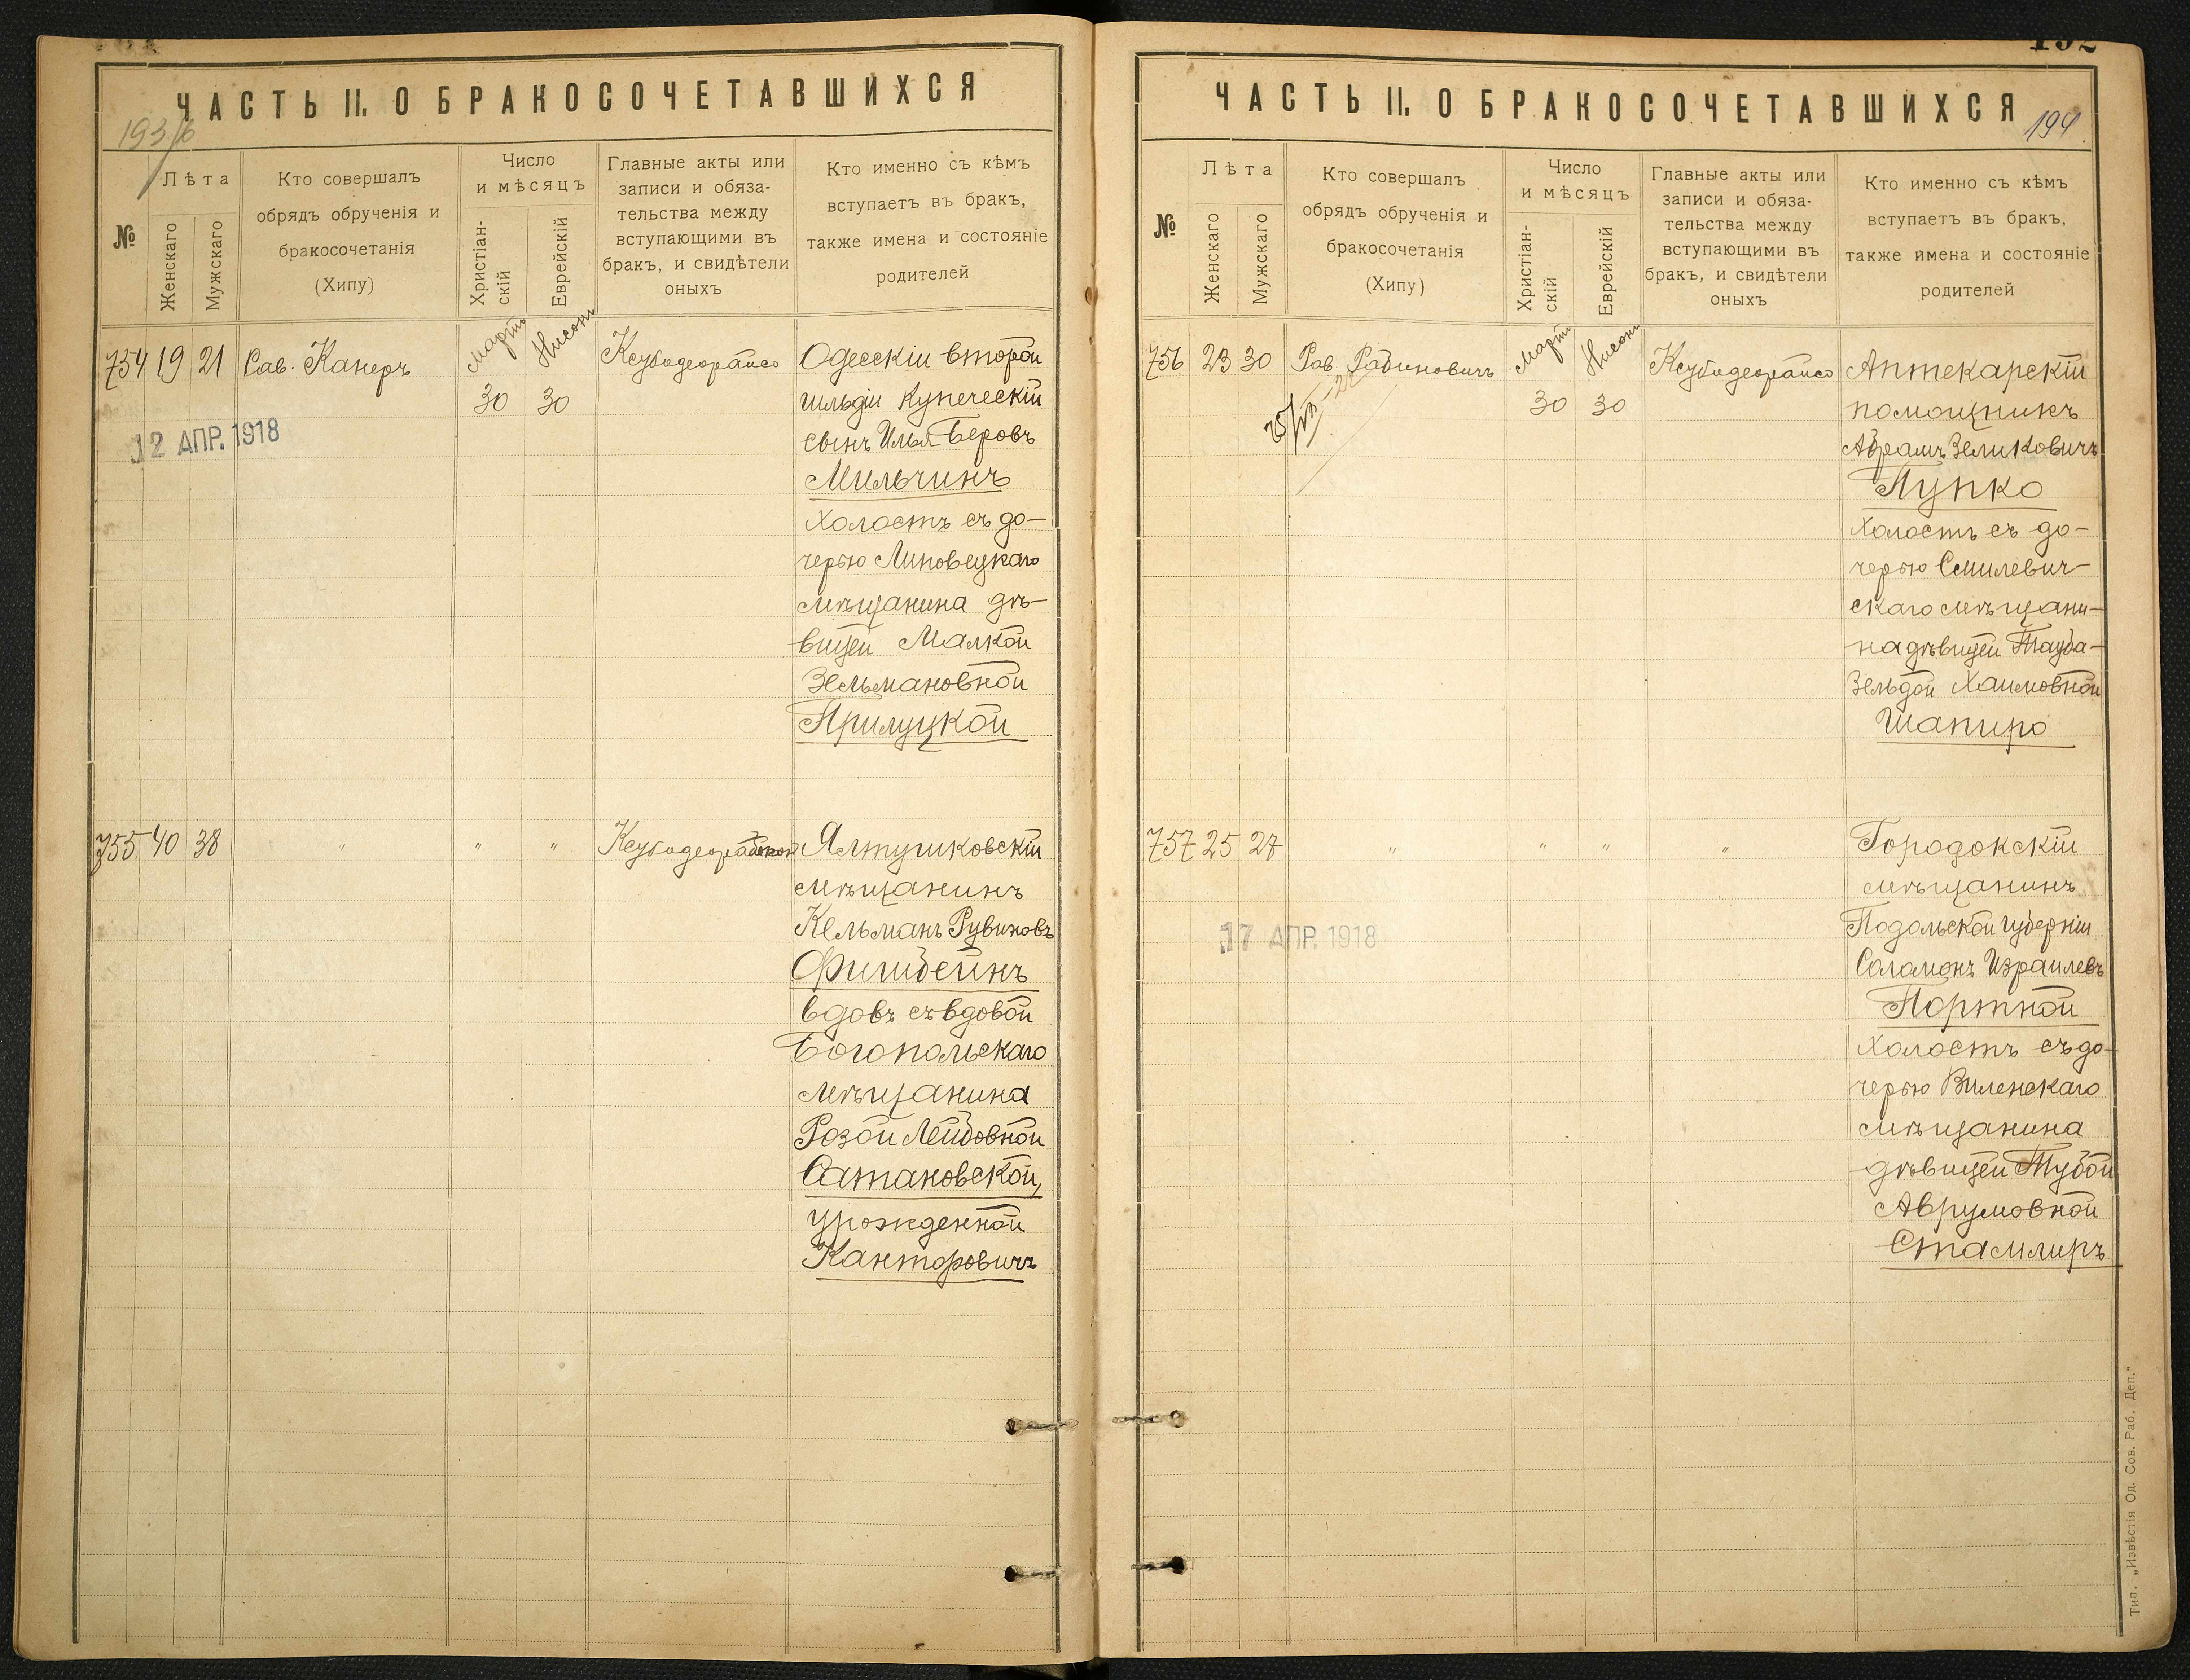 ЧАСТЬ II. О БРАКОСОЧЕТАВШИХСЯ
193/6
№
Лѣта
Женскаго
Мужскаго
Кто совершалъ
обрядъ обрученія и
бракосочетанія
(Хипу)
Число
и мѣсяцъ
Христіан-
скій
Еврейскій
Главные акты или
записи и обяза-
тельства между
вступающими въ
бракъ, и свидѣтели
оныхъ
Кто именно съ кѣмъ
вступаетъ въ бракъ,
также имена и состояніе
родителей
754 19 21 Рав. Канеръ
Мартъ
30
Нисонъ
30
Ксубидеорайсо
12 АПР. 1918
Одесскій второй
гильдіи купеческій
сынъ Илья Беровъ
Мильчинъ
холостъ съ до-
черью Липовецкаго
мѣщанина дѣ-
вицей Малкой
Зельмановной
Прилуцкой
755 40 38 " " "
Ялтушковскій
мѣщанинъ
Кельманъ Рувиновъ
Фишбейнъ
вдовъ съ вдовой
Богопольскаго
мѣщанина
Розой Лейбовной
Сатановской,
урожденной
Канторовичъ
ЧАСТЬ II. О БРАКОСОЧЕТАВШИХСЯ
194
№
Лѣта
Женскаго
Мужскаго
Кто совершалъ
обрядъ обрученія и
бракосочетанія
(Хипу)
Число
и мѣсяцъ
Христіан-
скій
Еврейскій
Главные акты или
записи и обяза-
тельства между
вступающими въ
бракъ, и свидѣтели
оныхъ
Кто именно съ кѣмъ
вступаетъ въ бракъ,
также имена и состояніе
родителей
756 23 30 Рав. Рабиновичъ
Мартъ
30
Нисонъ
30
Ксубидеорайсо
Аптекарскій
помощникъ
Абрамъ Зеликовичъ
Лупко
холостъ съ до-
черью Смилевич-
скаго мѣщани-
на дѣвицей Тауба-
Зельдой Хаимовной
Шапиро
757 25 27 " " " "
17 АПР. 1918
Городокскій
мѣщанинъ
Подольской губерніи
Соломонъ Израилевъ
Портной
холостъ съ до-
черью Виленскаго
мѣщанина
дѣвицей Тубой
Аврумовной
Стамлиръ
Тип. „Извѣстія Од. Сов. Раб. Деп."